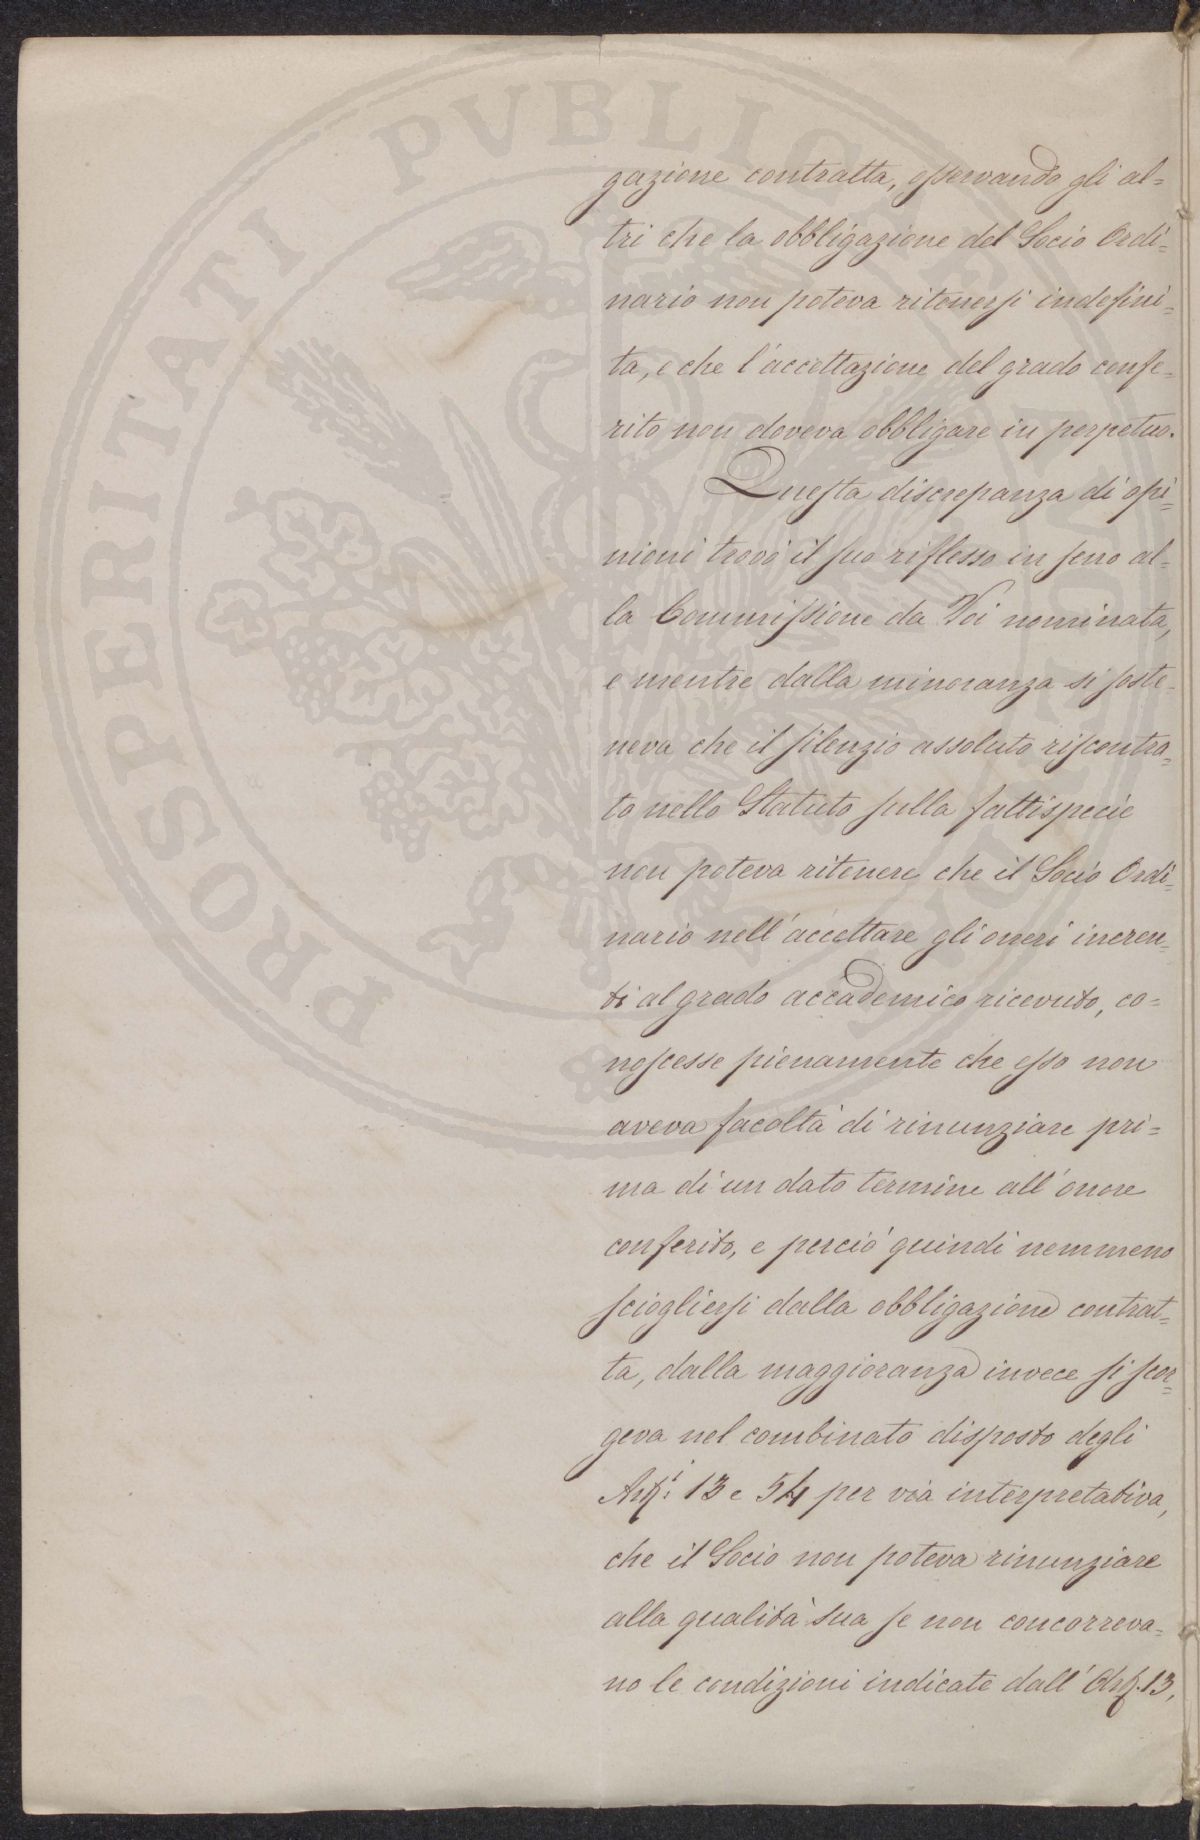 gazione contratta, osservando gli al=
tri che la obbligazione del Socio Ordi=
nario non poteva ritenersi indefini=
ta, e che l'accettazione del grado confe=
rito non doveva obbligare in perpetuo.
Questa discrepanza di opi=
nioni trovò il suo riflesso in seno al=
la Commissione da Voi nominata,
e mentre dalla minoranza si soste=
neva che il silenzio assoluto riscontra=
to nello Statuto sulla fattispecie
non poteva ritenere che il Socio Ordi=
nario nell'accettare gli oneri ineren=
ti al grado accademico ricevuto, co=
noscesse pienamente che esso non
aveva facoltà di rinunziare pri=
ma di un dato termine all'onore
conferito, e perciò quindi nemmeno
sciogliersi dalla obbligazione contrat=
ta, dalla maggioranza invece si scor=
geva nel combinato disposto degli
Arti: 13 e 54 per via interpretativa,
che il Socio non poteva rinunziare
alla qualità sua se non concorreva=
no le condizioni indicate dall'Art. 13,
PROSPERITATI PVBLICAE